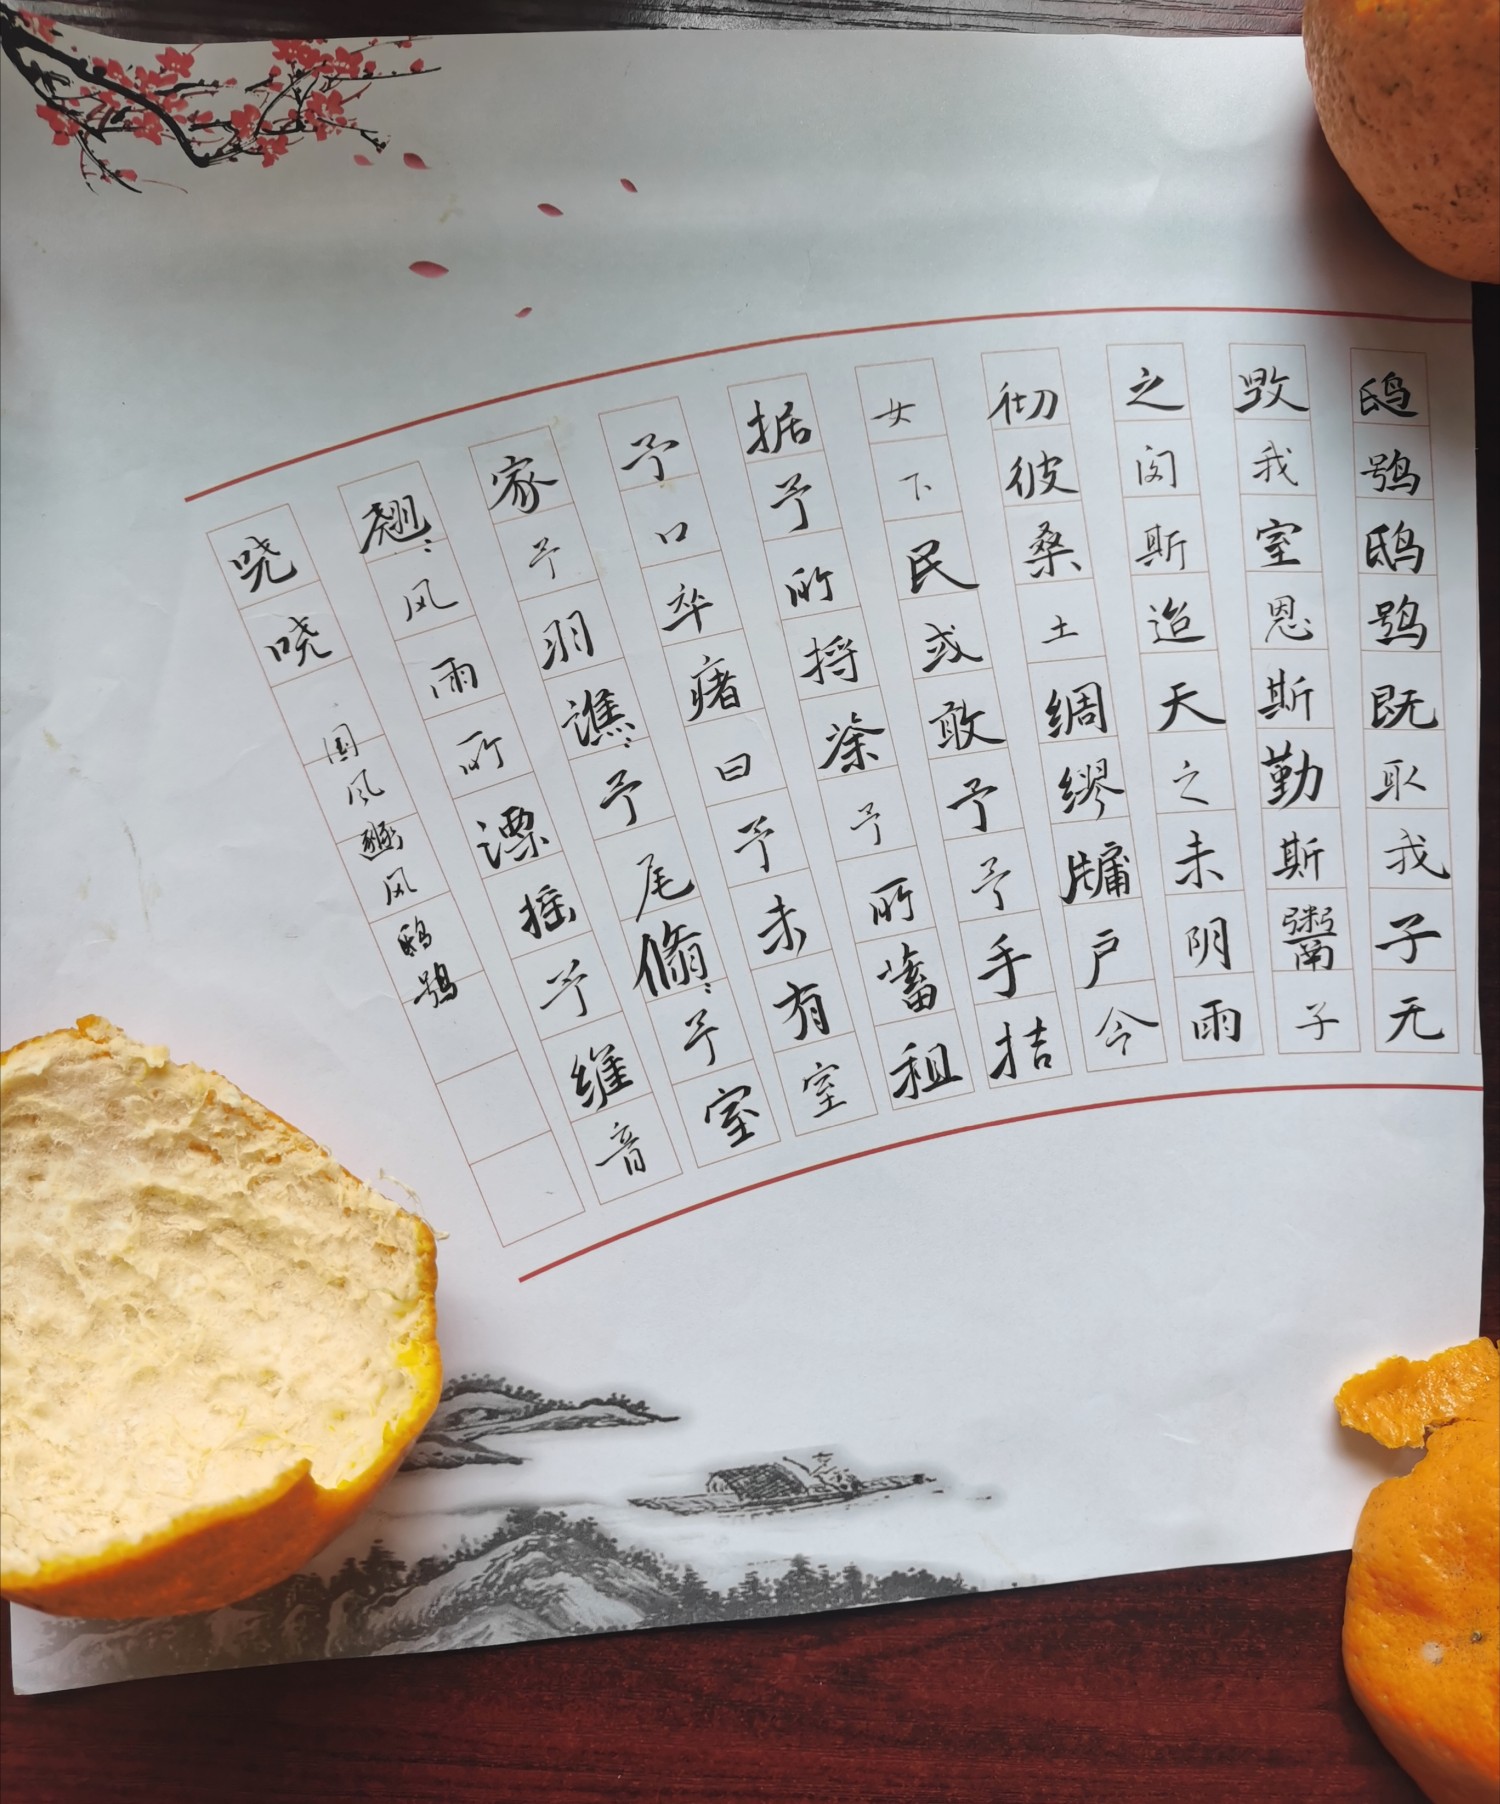 鸱鸮鸱鸮既取我子无
毁我室恩斯勤斯鬻子
之闵斯迨天之未阴雨
彻彼桑土绸缪牖户今
女下民或敢予予手拮
据予所捋荼予所蓄租
予口卒瘏曰予未有室
家予羽谯〻予尾翛〻予室
翘〻风雨所漂摇予维音
哓哓 国风豳风鸱鸮